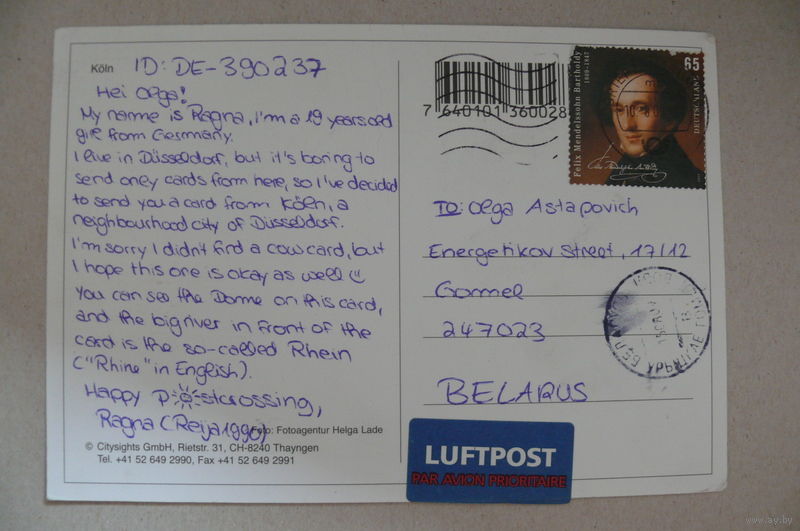 Köln ID: DE-390237
Hei Olga!
My name is Ragna, I'm a 19 years old
girl from Germany.
I live in Düsseldorf, but it's boring to
send only cards from here, so I've decided
to send you a card from Köln, a
neighbourhood city of Düsseldorf.
I'm sorry I didn't find a cow card, but
I hope this one is okay as well
You can see the Dome on this card,
and the big river in front of the
card is the so-called Rhein
("Rhine" in English).
Happy Postcrossing,
Ragna (Reija1990)
Foto: Fotoagentur Helga Lade
© Citysights GmbH, Rietstr. 31, CH-8240 Thayngen
Tel. +41 52 649 2990, Fax +41 52 649 2991
7 640101 360028
Felix Mendelssohn Bartholdy
1809-1847
65
DEUTSCHLAND
TO: Olga Astapovich
Energetikov Street, 17/12
Gomel
247023
BELARUS
LUFTPOST
PAR AVION PRIORITAIRE
www.ay.by